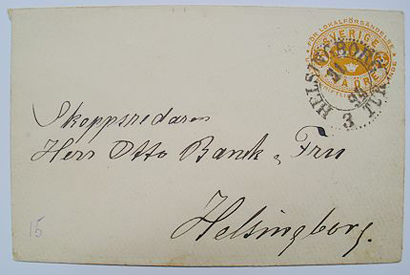 FÖR LOKALFÖRSÄNDELSE
SVERIGE
HELSINGBORG
3 TUR
Skeppsredaren
Herr Otto Banck & Fru
Helsingborg.
15